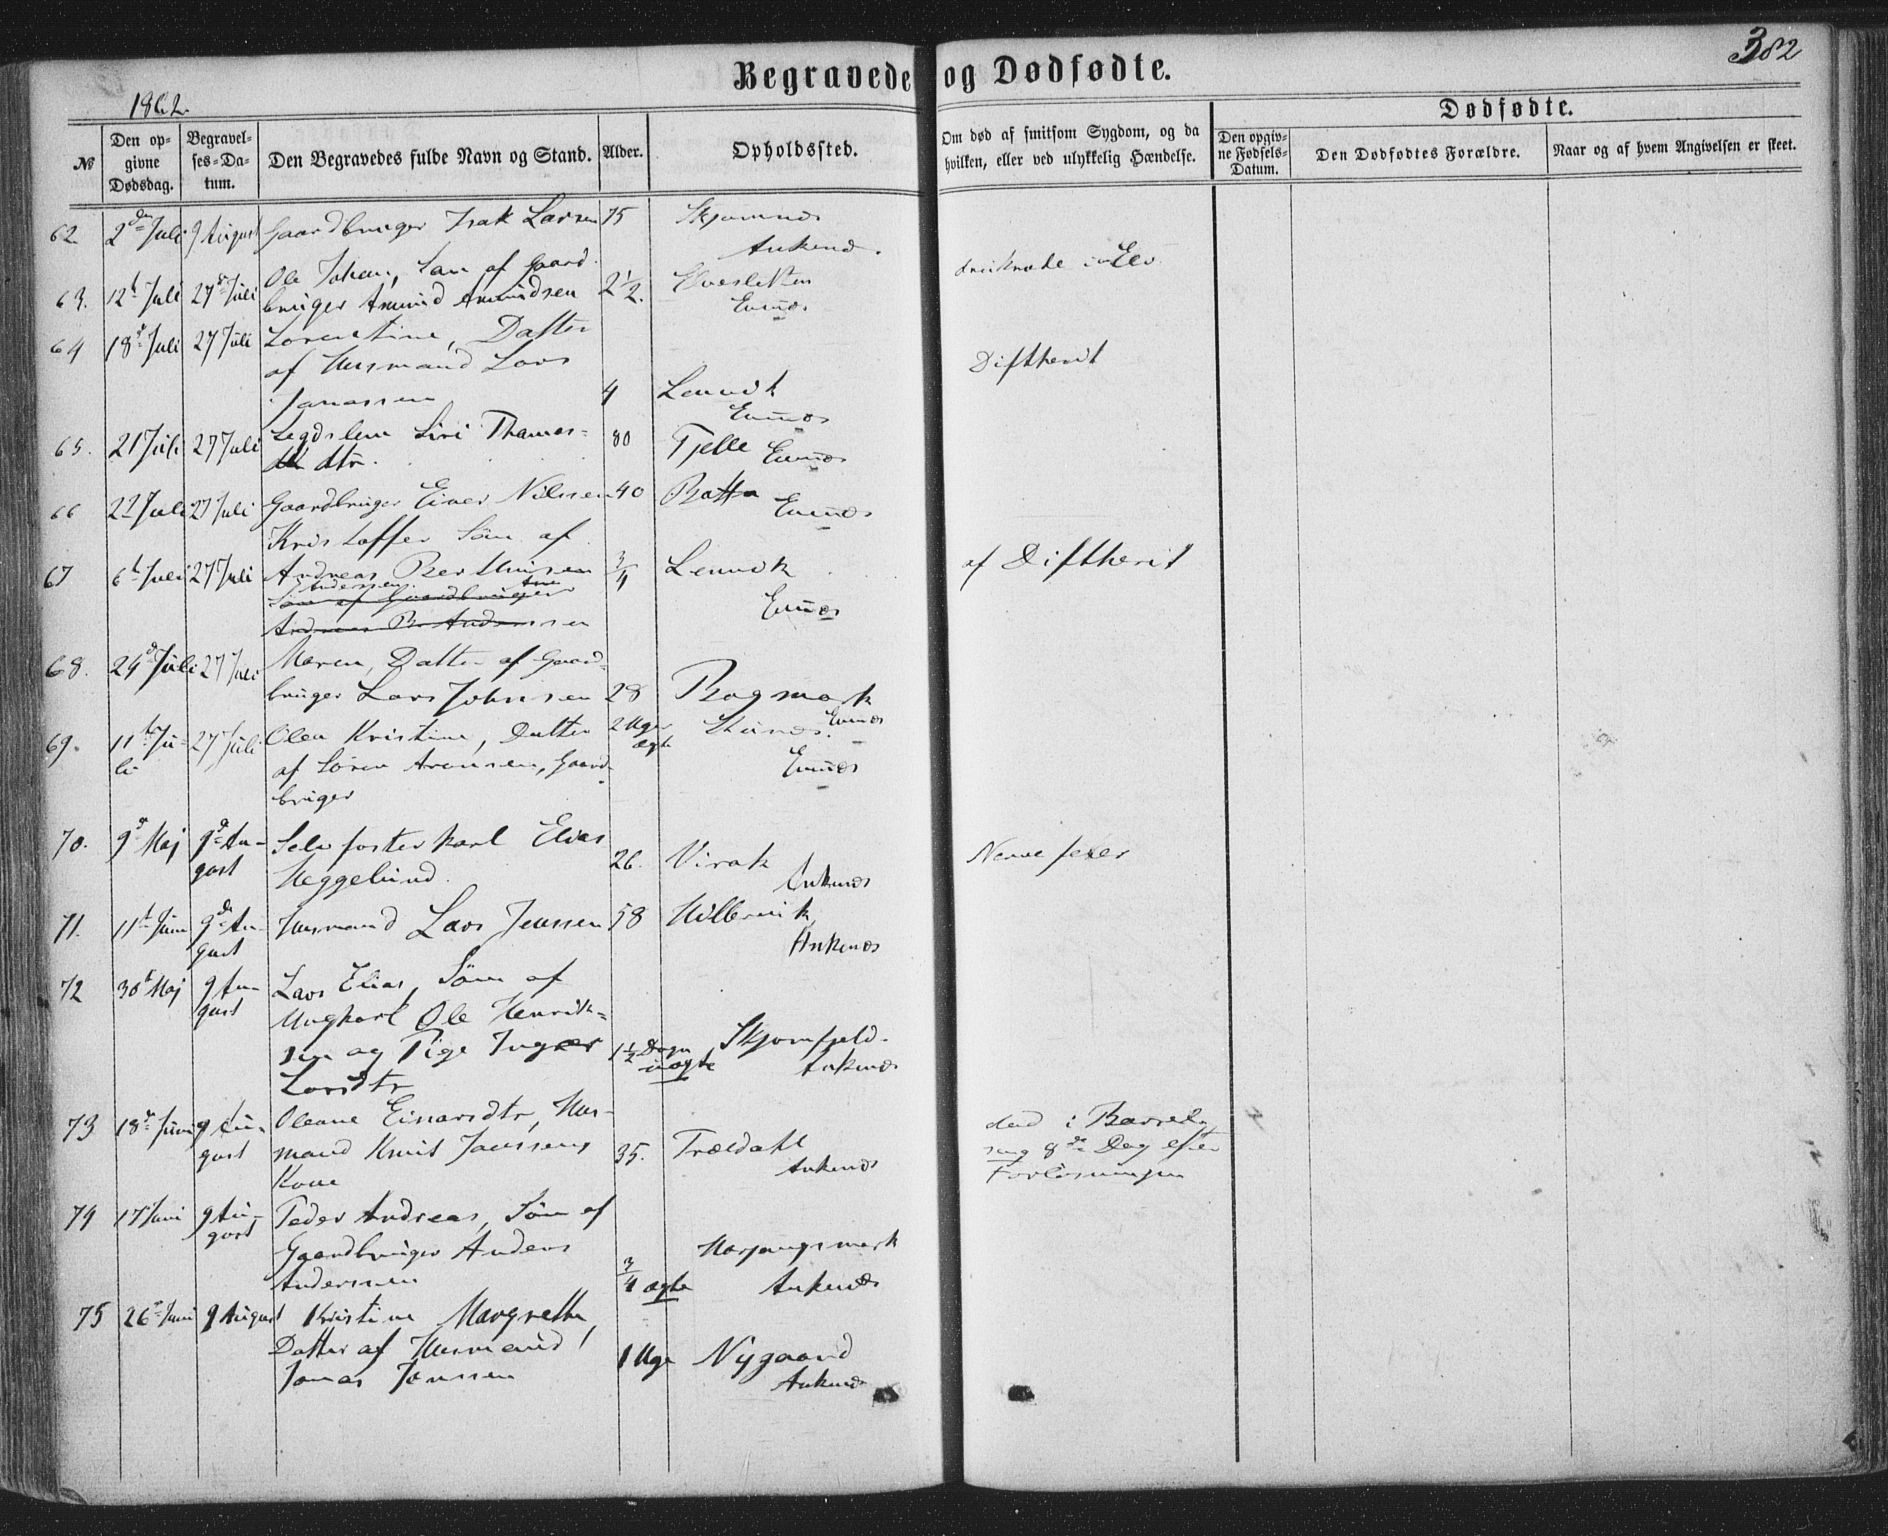 382
Begravede og Dødfødte.
1862.
Dødfødte.
№
Den op-
givne
Dødsdag.
Begravel-
ses-Da-
tum.
Den Begravedes fulde Navn og Stand.
Alder.
Opholdssted.
Om død af smitsom Sygdom, og da
hvilken, eller ved ulykkelig Hændelse.
Den opgiv-
ne Fødsels-
Datum.
Den Dødfødtes Forældre.
Naar og af hvem Angivelsen er skeet.
62 2den Juli 9 August Gaardbruger Isak Larsen 75 Skjomnes
Ankenes.
63. 12t Juli 27de Juli Ole Johan, Søn af Gaard-
bruger Amund Amundsen 2½. Elvesletten
Evenes
druknede i en Elv
64 18de Juli 27 Juli Lorentine, Datter
af Husmand Lars
Jonassen 4 Lenvik
Evenes
Diftherit
65. 21 Juli 27 Juli Legdslem Siri Thomas-
dtr. 80 Tjelle Evenes
66 22 Juli 27 Juli Gaardbruger Einer Nilssen 40 Botten
Evenes
67 6t Juli 27 Juli Kristoffer Søn af
Andreas Berthinsen
Anderssen
Søn af Gaardbruger
Andreas B. Anderssen
3/4 Lenvik
Evenes
af Diftherit
68. 24de Juli 27 Juli Maren, Datter af Gaard-
bruger Lars Johnsen 28 Bogsmark
Evenes
69. 11te Ju-
li 27 Juli Olea Kristine, Datter
af Søren Aronsen, Gaard-
bruger
2 Uger
ægte
Evenes
70. 9de Maj 9de Au-
gust Selvfosterkarl Elias
Heggelund. 26. Virak
Ankenes
Nervefeber
71. 11t Juni 9de Au-
gust Husmand Lars Jenssen 58
Ankenes
72 30t Maj 9 Au-
gust Lars Elias, Søn af
Ungkarl Ole Henrik-
sen og Pige Inger
Larsdtr 1½ Døgn
uægte
Skjomfjeld
Ankenes
73 18de Juni 9 Au-
gust Oleane Einarsdtr, Hus-
mand Knut Jonssens
Kone 35. Trældahl
Ankenes
død i Barsel-
seng 8de Dag efter
Forløsningen
74 17 Juni 9 Au-
gust Peder Andreas, Søn af
Gaardbruger Anders
Anderssen 3/4 ægte
Herjangsmark
Ankenes
75 26de Juni 9 August Kristine Margrethe,
Datter af Husmand
Jonas Jonssen 1 Uge Nygaard
Ankenes